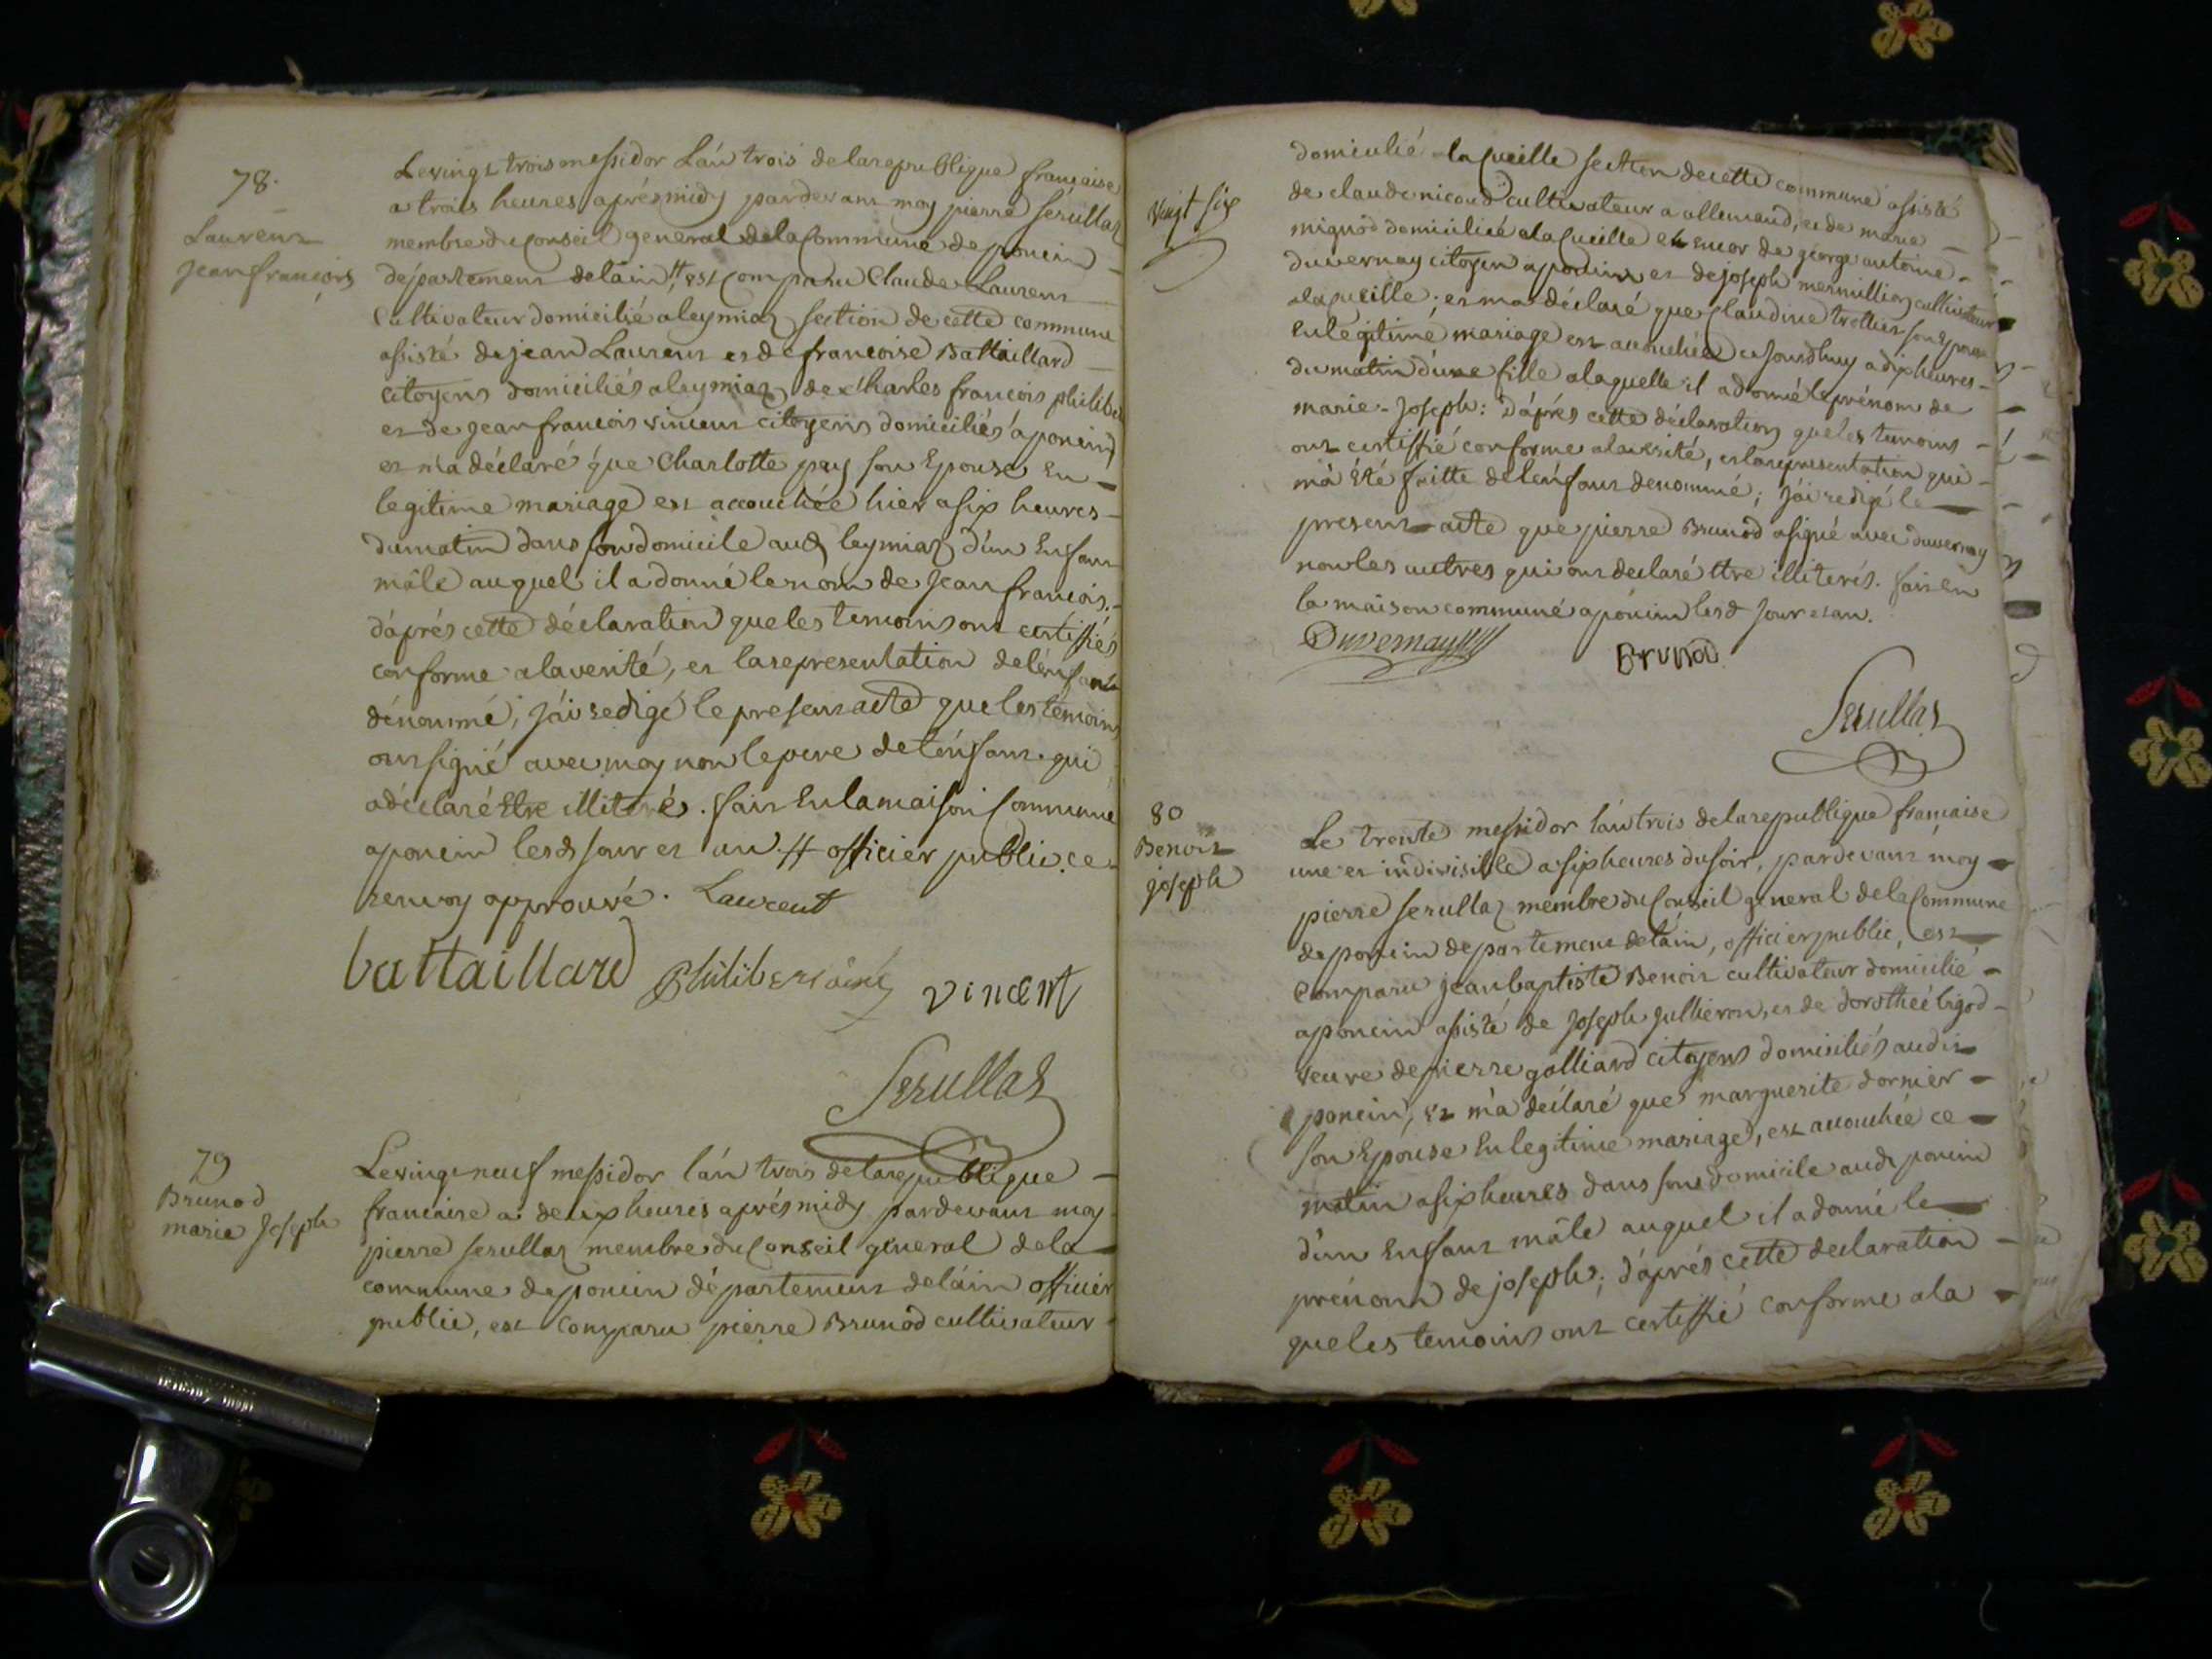 78.
Laurent
jean françois
Le vingt trois messidor L'an trois de la republique française
a trois heures aprés midy pardevant moy pierre serullaz
membre du Conseil general de la Commune de poncin
departement de lain, # est Comparu Claude Laurent
Cultivateur domicilié a leymiaz section de cette commune
assisté de jean Laurent et de françoise Battaillard
citoyens domiciliés a leymiaz de charles françois philibert
et de jean françois vincent citoyens domiciliés a poncin
et m'a déclaré que Charlotte pay son Epouse En
legitime mariage est accouchée hier a six heures
du matin dans son domicile aud leymiaz d'un Enfant
mâle auquel il a donné le nom de Jean françois.
d'aprés cette déclaration que les temoins ont certiffiés
conforme a la verité, et la representation de l'enfant
dénommé, j'ai redigé le present acte que les témoins
ont signé avec moy non le pere de l'enfant qui
a déclaré Etre illiteré. fait En la maison Commune
a poncin lesd jour et an. # officier public ce
renvoy approuvé. Laurent
battaillard philibert ainé vincent
Serullaz
79
Brunod
marie Joseph
Le vingt neuf messidor l'an trois de la republique
française a deux heures aprés midy pardevant moy
pierre serullaz membre du Conseil general de la
commune de poncin département de l'ain officier
public, est Comparu pierre Brunod cultivateur
Vingt six
domicilié la Cueille section de cette commune assisté
de claude nicoud cultivateur a allemand, et de marie
mignod domiciliée a la Cueille et encor de george antoine
duvernay citoyen a poncin et de joseph mermillion cultivateur
a la cueille; et m'a déclaré que Claudine trollier son Epouse
En légitime mariage est accouchée ce jourdhuy a dix heures
du matin d'une fille a laquelle il a donné le prénom de
marie-Joseph: d'aprés cette déclaration que les temoins
ont certiffié conforme a la verité, et la representation qui
m'a été faitte de l'enfant denommé; j'ai redigé le
present acte que pierre Brunod a signé avec duvernay
non les autres qui ont declaré etre illiterés. fait En
la maison commune a poncin lesd jour et an.
Duvernay
Brunod
Serullaz
80
Benoit
joseph
Le trente messidor l'an trois de la republique française
une et indivisible a six heures du soir, pardevant moy
pierre serullaz membre du Conseil general de la Commune
de poncin departement de l'ain, officier public, est
Comparu jean baptiste Benoit cultivateur domicilié
a poncin assisté de Joseph jullieron, et de dorothée bigod
veuve de pierre golliard citoyens domiciliés audit
poncin, et m'a déclaré que marguerite dornier
son Epouse En legitime mariage, est accouchée ce
matin a six heures dans son domicile aud poncin
d'un Enfant mâle auquel il a donné le
prénom de joseph; d'aprés cette declaration
que les temoins ont certiffié conforme a la